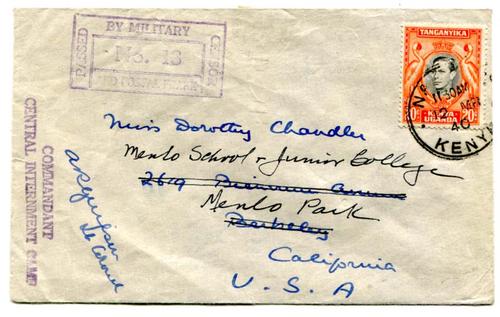 PASSED
BY MILITARY
CENSOR
No. 13
TANGANYIKA
20c
KENYA
UGANDA
20c
30AM
40
KENYA
Miss Dorothy Chandler
Menlo School & Junior College
2619
Menlo Park
Berkeley
California
U. S. A
COMMANDANT
CENTRAL INTERNMENT CAMP
Lt Colonel